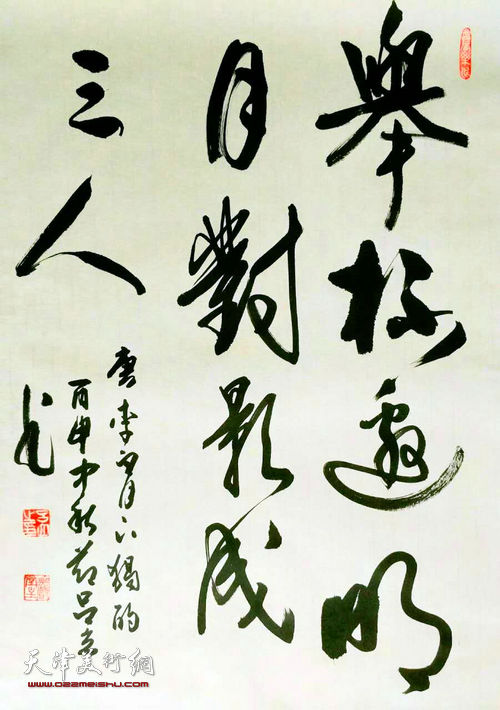 舉杯邀明
月對影成
三人
唐李白月下獨酌
丙申中秋
天津美術網
www.022meishu.com